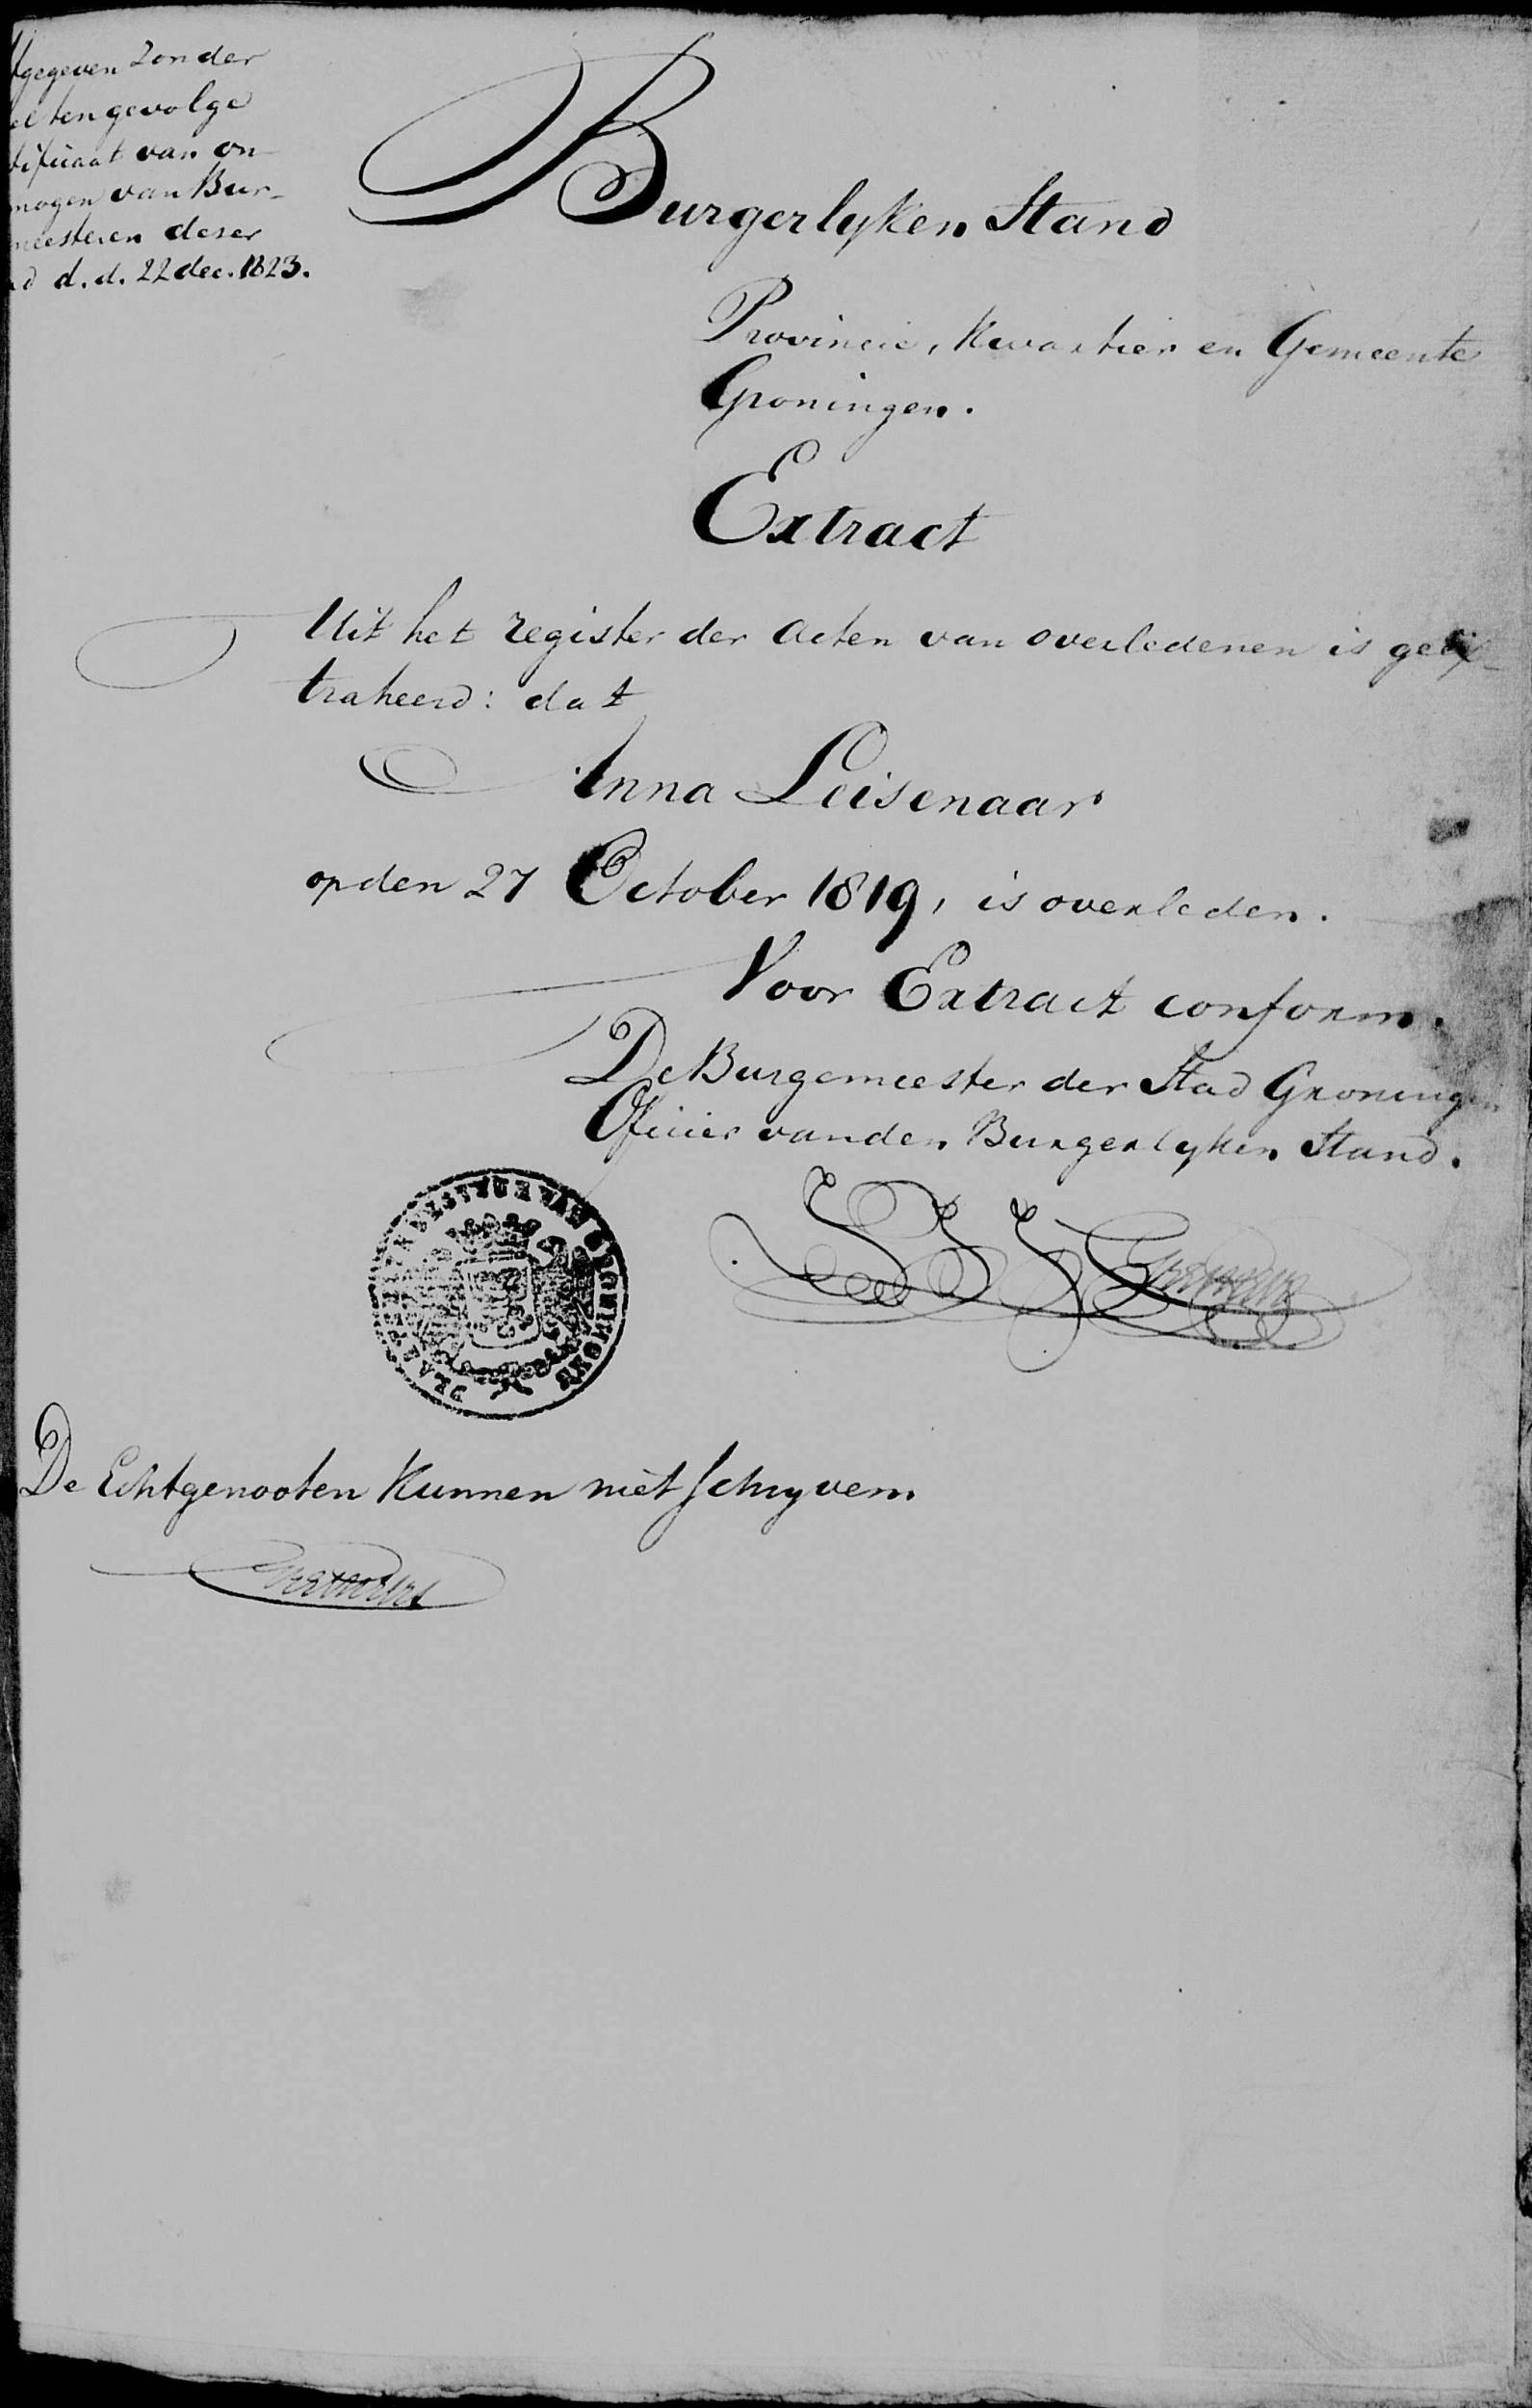 fgegeven zonder
el ten gevolge
tificaat van on
mogen van Bur-
meesteren deser
d d. d. 22 dec. 1823.
Burgerlyken Stand
Provincie, Kwartier en Gemeente
Groningen.
Extract
Uit het register der acten van overledenen is geëx-
traheerd: dat
Anna Leisenaar
op den 27 October 1819, is overleden.
Voor Extract conform.
De Burgemeester der Stad Groningen
Officier van den Burgerlyken Stand.
BESTUUR VAN GRONINGEN
De Echtgenooten kunnen niet schryven.